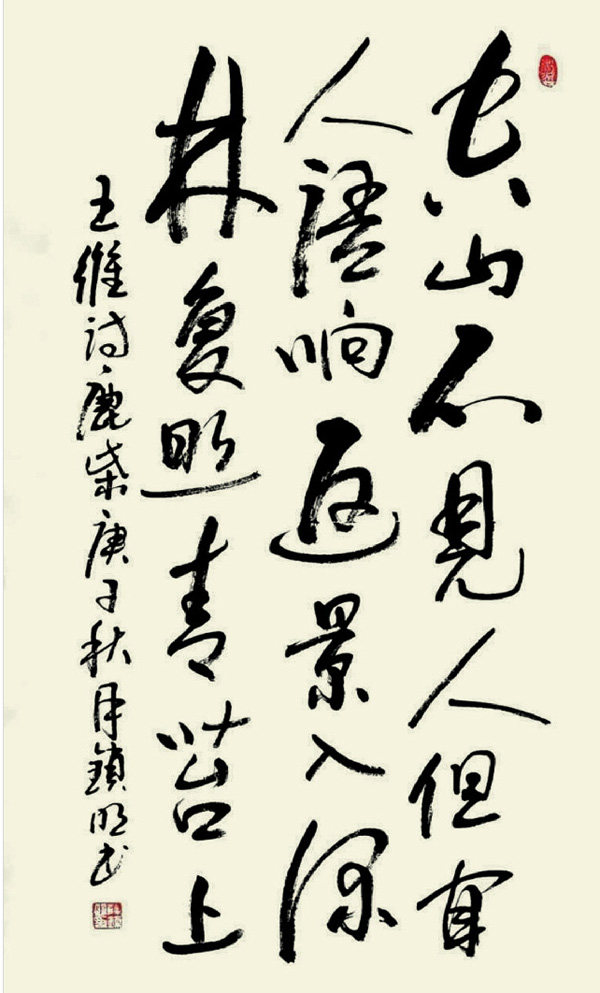 空山不見人但聞
人語响返景入深
林复照青苔上
王維诗鹿柴庚子秋月鎮明书